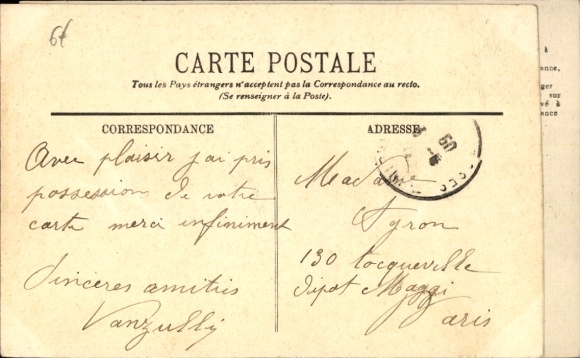 6f
CARTE POSTALE
Tous les Pays étrangers n'acceptent pas la Correspondance au recto.
(Se renseigner à la Poste).
CORRESPONDANCE
Avec plaisir j'ai pris
possession de votre
carte merci infiniment
Sincères amitiés
Vanzullij
ADRESSE
Madame
Syron
130 Tocqueville
Dépot Maggi
Paris
à
ance,
ger
sur
vé à
ance